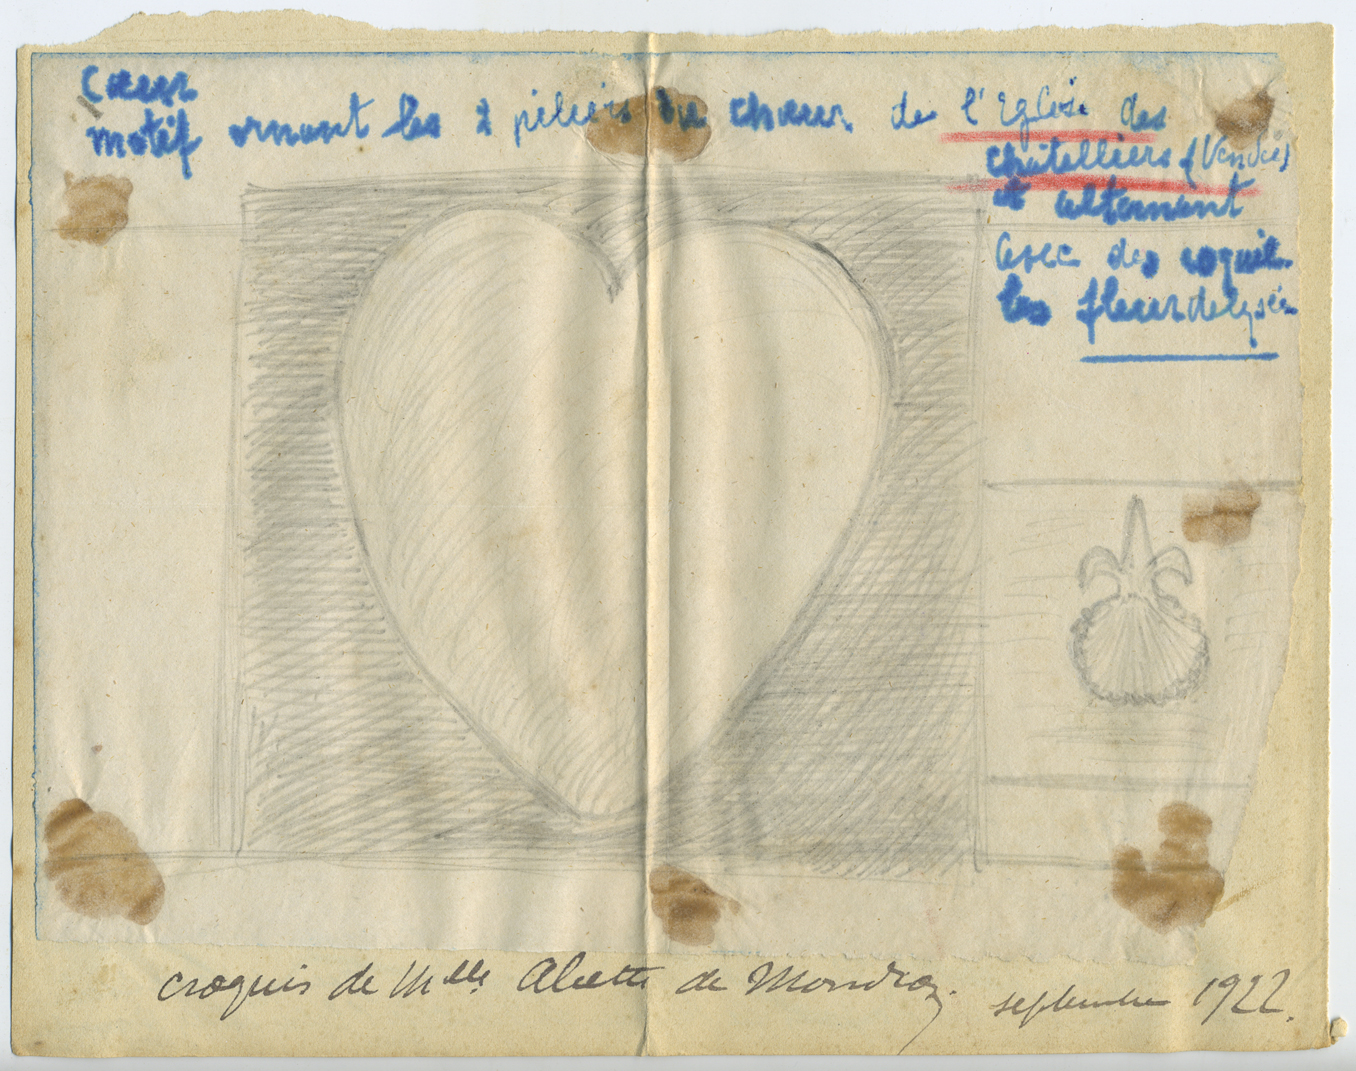 Cœur
motif ornant les 2 piliers du chœur de l'Eglise des
chatelliers (Vendée)
et alternant
avec des coquil-
les fleurdelysées
croquis de Mlle Aliette de
septembre 1922.